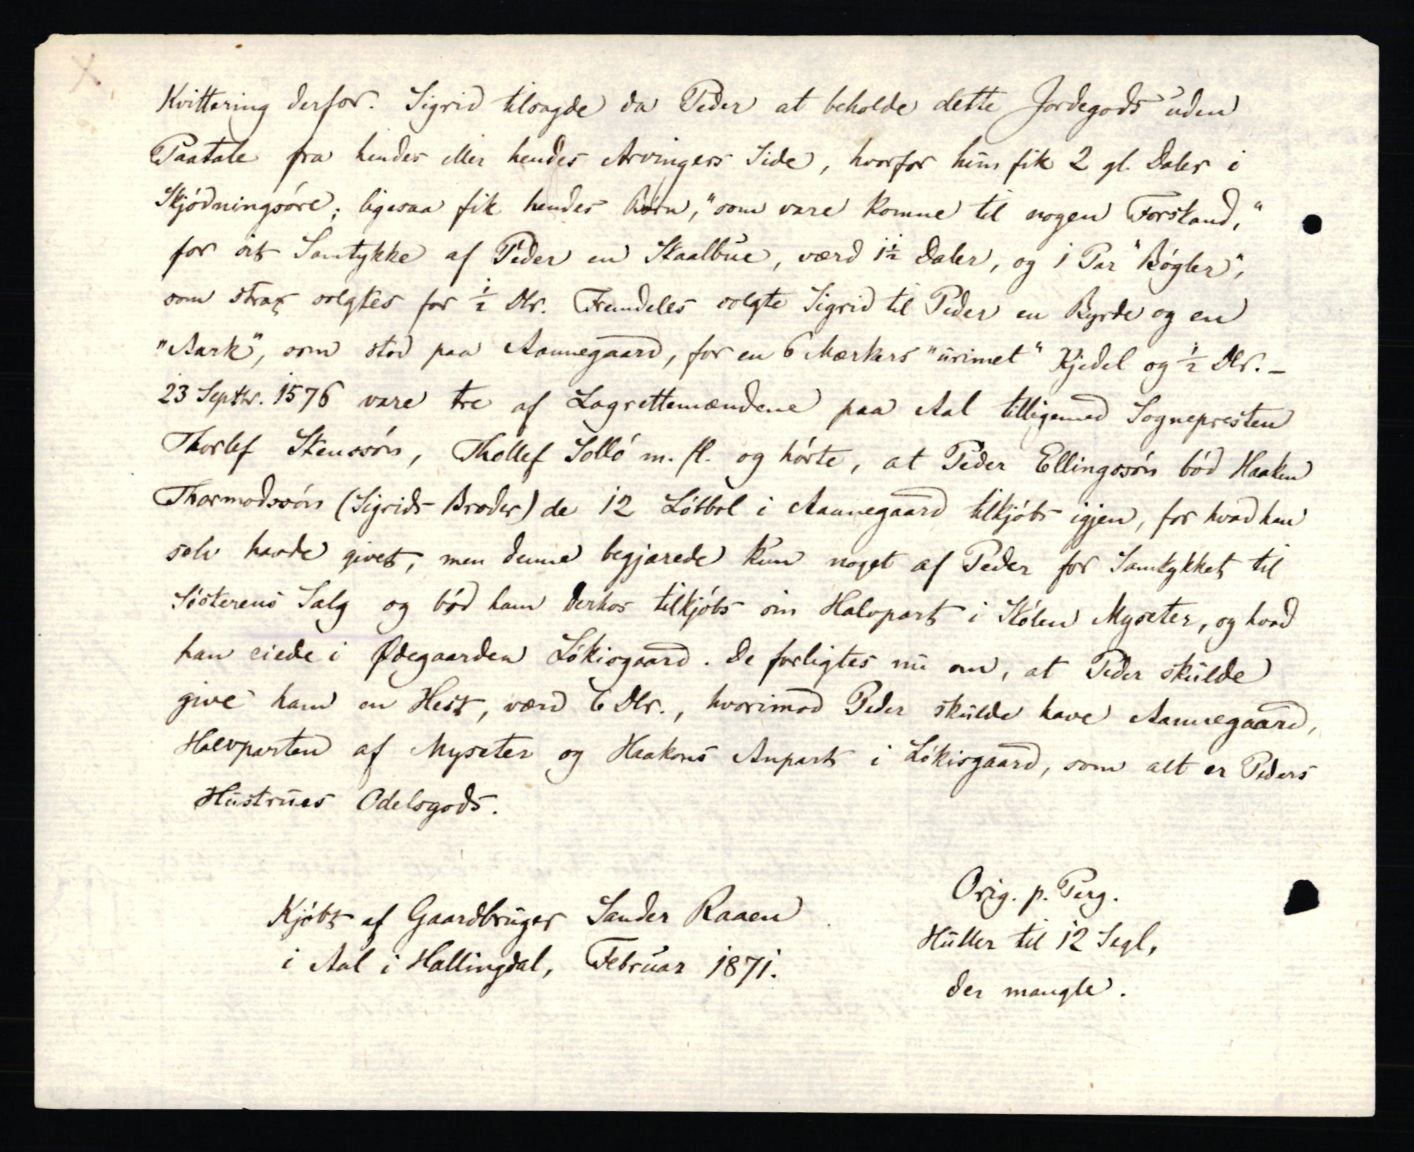 Kvittering derfor. Sigrid tilsagde da Peder at beholde dette Jordegods uden
Paatale fra hendes eller hendes Arvingers Side, hvorfor hun fik 2 gl. Daler i
Skjødningsøre; ligesaa fik hendes Børn, "som vare komne til nogen Forstand,"
for sit Samtykke af Peder en Staalbue, værd 1½ Daler, og 1 Par "Bøgler",
som strax solgtes for ½ Dlr. Fremdeles solgte Sigrid til Peder en Byrde og en
"Aark", som stod paa Aannegaard, for en 6 Mærkers "urimet" Kjedel og ½ Dlr. –
23 Septbr. 1576 vare tre af Lagrettemændene paa Aal tilligemed Sognepresten
Thorlef Stenssøn, Thollef Sollo m. fl. og hørte, at Peder Ellingssøn bød Haaken
Thormodssøn (Sigrids Broder) de 12 Løbbol i Aannegaard tilkjøbs igjen, for hvad han
selv havde givet, men denne begjærede kun noget af Peder for Samtykket til
Søsterens Salg og bød ham derhos tilkjøbs sin Halvpart i Stølen Myseter, og hvad
han eiede i Ødegaarden Løkisgaard. De forligtes nu om, at Peder skulde
give ham en Hest, værd 6 Dlr., hvorimod Peder skulde have Aannegaard,
Halvparten af Myseter og Haakons Anpart i Løkisgaard, som alt er Peders
Hustrues Odelsgods.
Kjøbt af Gaardbruger Sander Raaen
i Aal i Hallingdal, Februar 1871.
Orig. p. Perg.
Huller til 12 Segl,
der mangle.